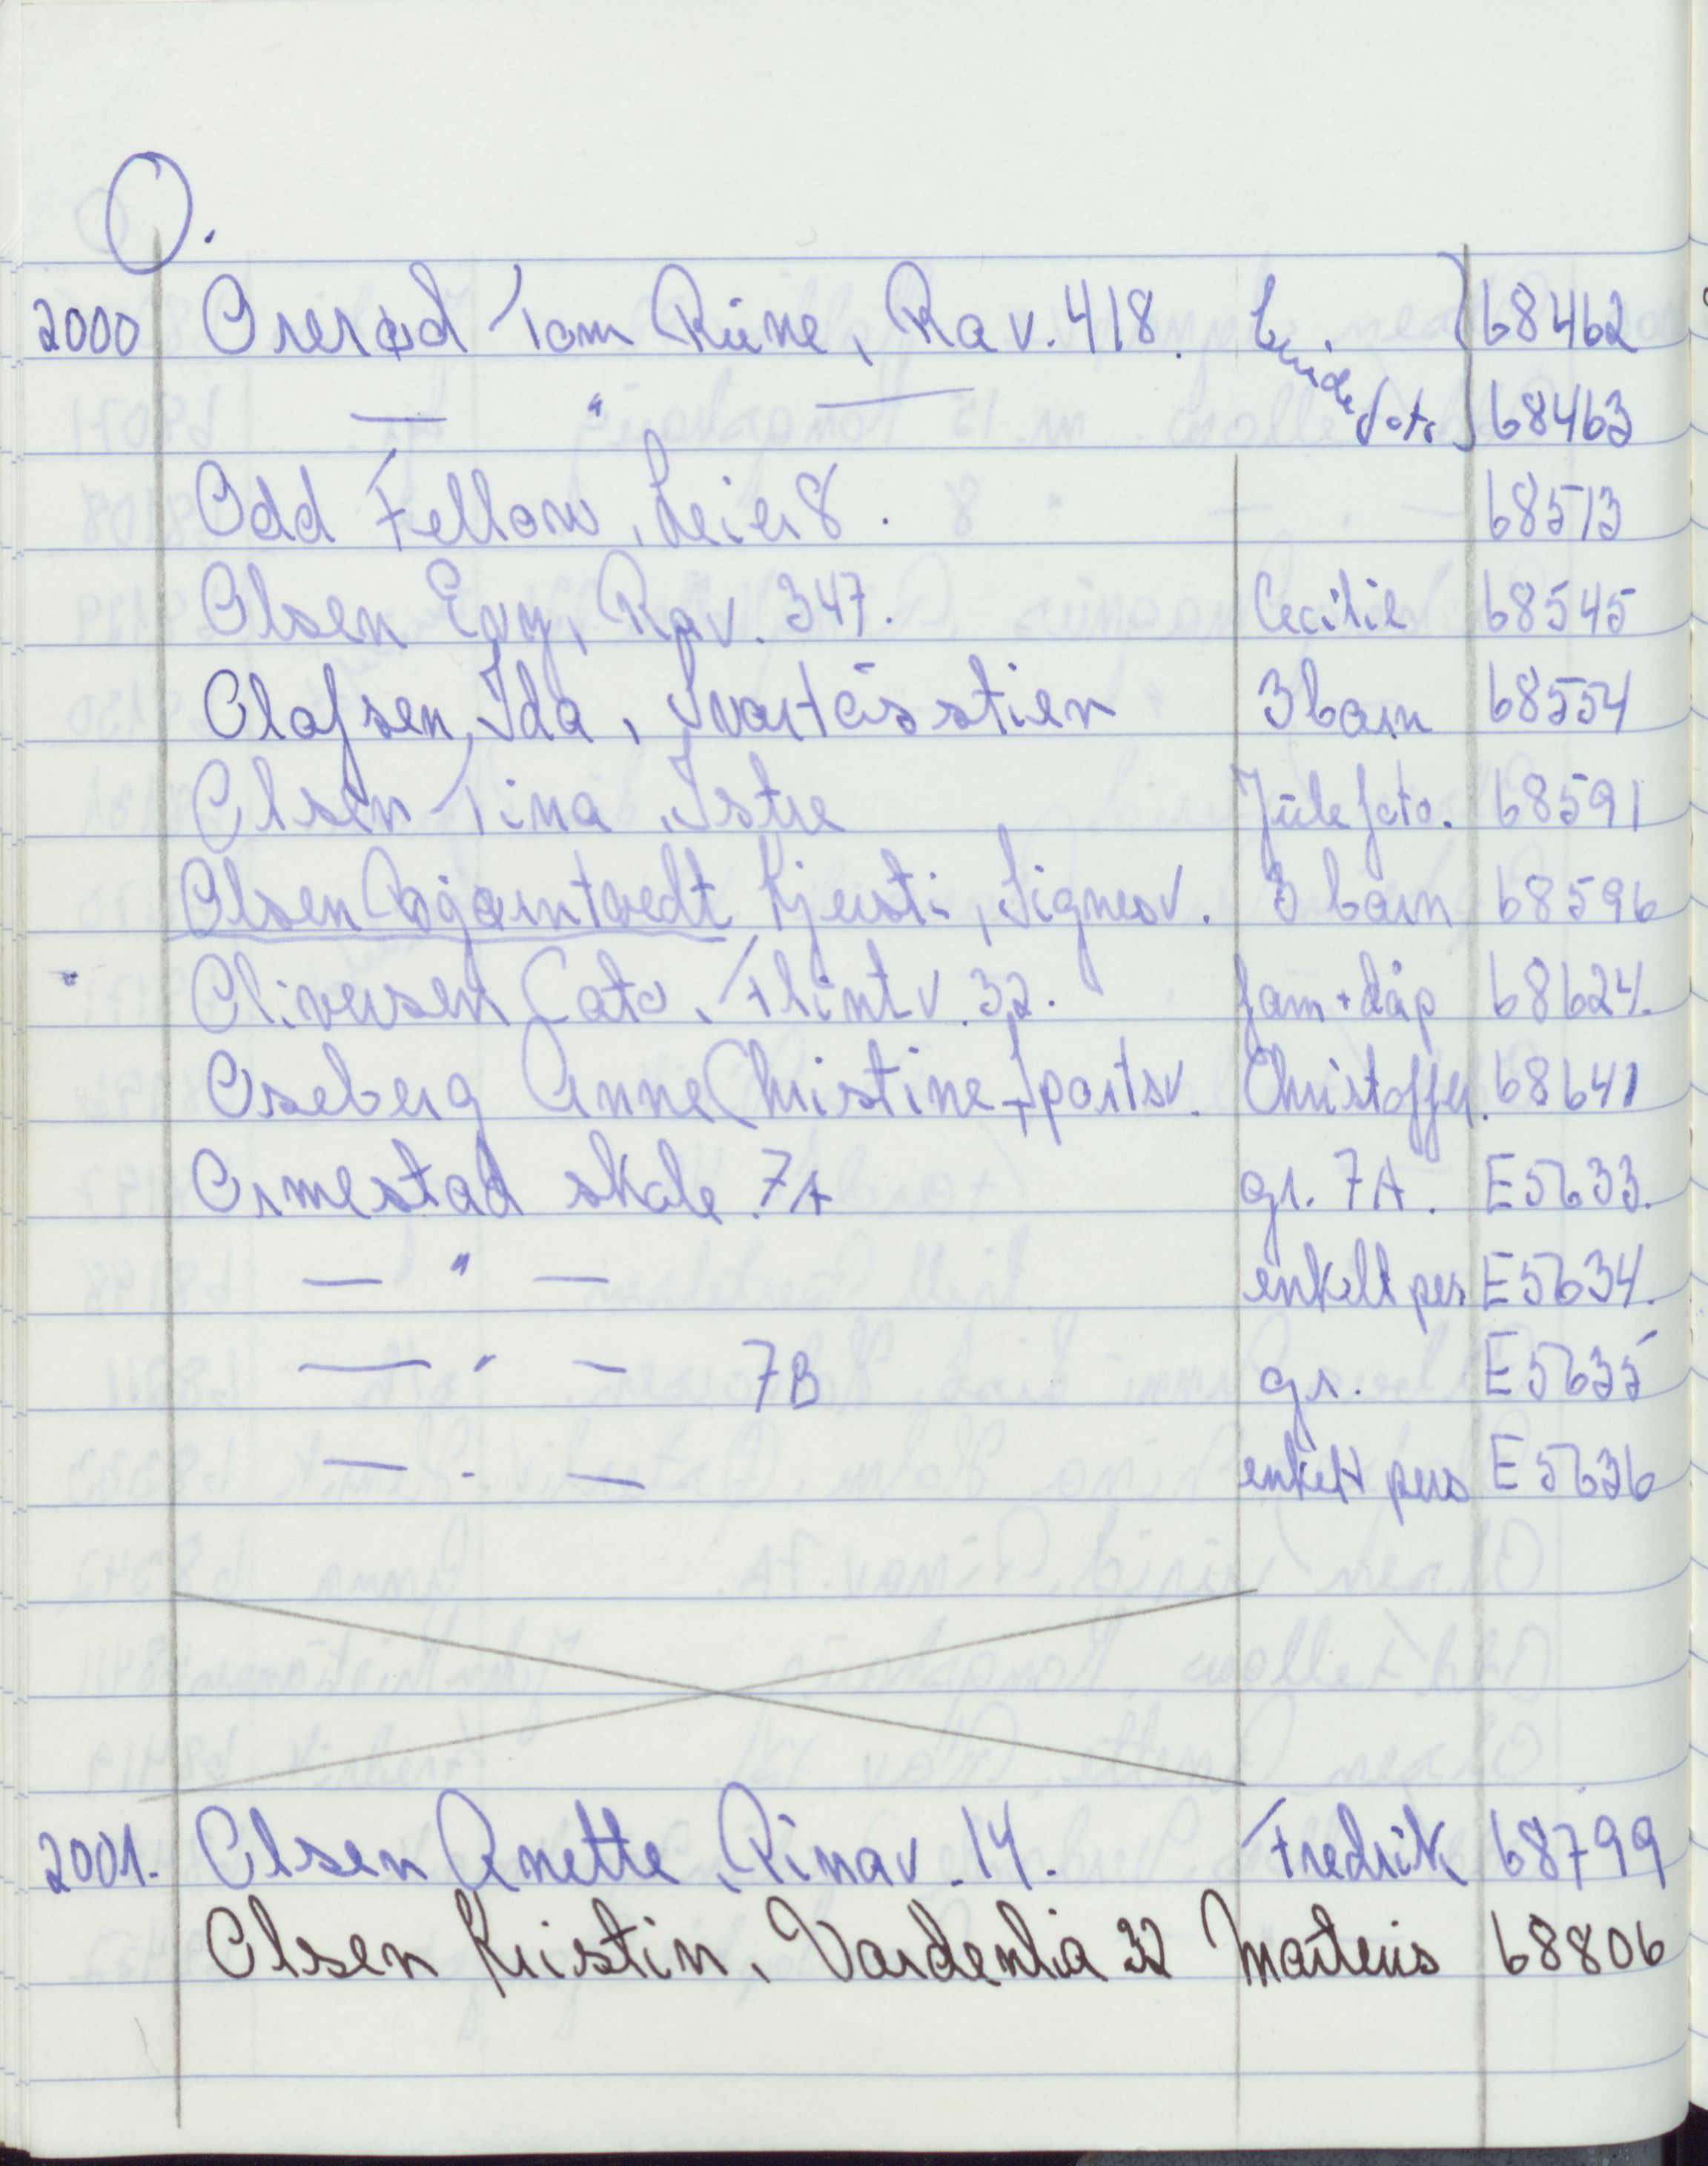 O.
2000 Orerød Tom Rune, Ra v. 418. 68462
— " — foto 68463
Odd Fellow, Leir 8. 68513
Olsen Evy, Rav. 347. Cecilie 68545
Olafsen, Ida, Svartåsstien 3 barn 68554
Olsen Tina, Istre Julefoto. 68591
Olsen Bjørntvedt Kjersti, Signesv. 3 barn 68596
Oliversen Cato, Flintv. 32. fam + dåp 68624.
Oseberg Anne Christine, Sportsv. Christoffer. 68641
Ormestad skole 7A gr. 7A. E5633.
— " — enkelt pers E5634.
— " — 7B gr. E5635
— " — enkelt pers E5636
2001. Olsen Anette, Rinav. 14. Fredrik 68799
Olsen Kristin, Vardenlia 32 Marteus 68806